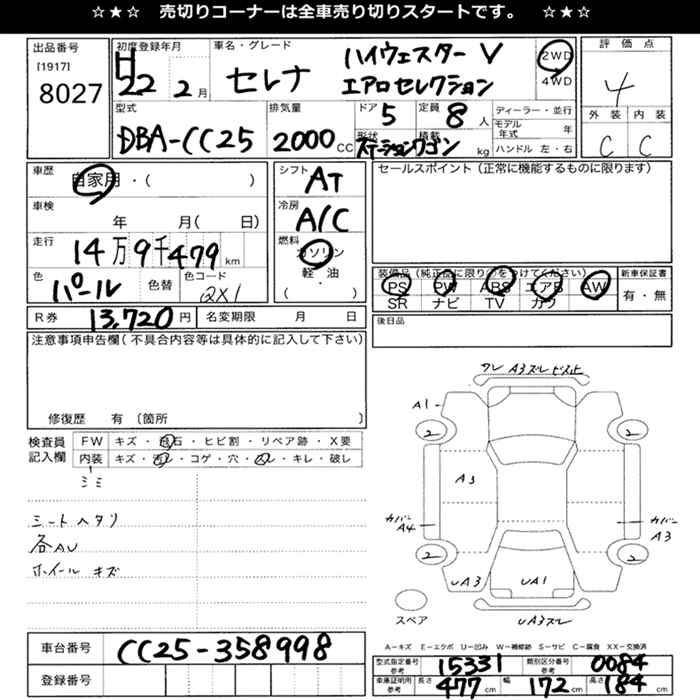 ☆★☆ 売切りコーナーは全車売り切りスタートです。 ☆★☆
出品番号
[1917]
8027
初度登録年月
H22 2月
車名・グレード
セレナ ハイウェスターV
エアロセレクション
2WD
4WD
評価点
4
外装 内装
C C
型式
DBA-CC25
排気量
2000CC
ドア 5
定員 8人
形状 ステーションワゴン
積載 kg
ディーラー・並行
モデル年式 年
ハンドル 左・右
車歴
自家用・( )
車検
年 月( 日)
走行
14万9千479km
色
パール
色替
色コード
QX1
シフト
AT
冷房
A/C
燃料
ガソリン
軽・油
( ・ )
R券 13,720円
名変期限 月 日
セールスポイント(正常に機能するものに限ります)
装備品(純正品に限り○をつけてください)
PS PW ABS エアB AW
SR ナビ TV カワ
新車保証書
有・無
後日品
注意事項申告欄(不具合内容等は具体的に記入して下さい)
修復歴 有〔箇所 〕
検査員
記入欄
FW キズ・飛石・ヒビ割・リペア跡・X要
内装 キズ・汚レ・コゲ・穴・スレ・キレ・破レ
シミ
シートヘタリ
各AU
ホイールキズ
ワレ A3 ズレ ビス止
A1
2 2
A3
カバー
A4
カバー
A3
2 2
UA3 UA1
UA3 ズレ
スペア
A-キズ E-エクボ U-凹み W-補修跡 S-サビ C-腐食 XX-交換済
車台番号 CC25-358998
登録番号
型式指定番号
参考
15331
類別区分番号
参考
0084
車庫証明用
参考
長さ 477cm
幅 172cm
高さ 184cm